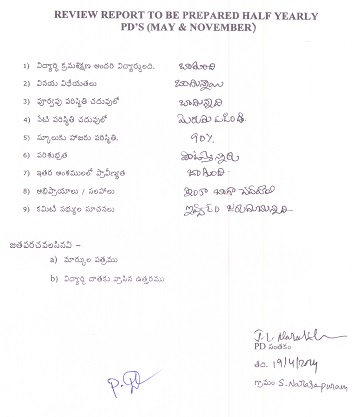 REVIEW REPORT TO BE PREPARED HALF YEARLY
PD'S (MAY & NOVEMBER)
1) విద్యార్థి క్రమశిక్షణ అందరి విద్యార్థులది. బాగుంది
2) వినయ విధేయతలు బాగున్నాయి
3) పూర్వపు పరిస్థితి చదువులో బాగున్నది
4) నేటి పరిస్థితి చదువులో
5) స్కూలుకు హాజరు పరిస్థితి. 90%
6) పరిశుభ్రత
7) ఇతర అంశములలో ప్రావీణ్యత బాగుంది
8) అభిప్రాయాలు / సలహాలు ఇంకా బాగా చదవాలి
9) కమిటి సభ్యుల సూచనలు
జతపరచవలసినవి –
a) మార్కుల పత్రము
b) విద్యార్థి దాతకు వ్రాసిన ఉత్తరము
PD సంతకం
తేది. 19/4/2014
గ్రామం S. Narasapuram